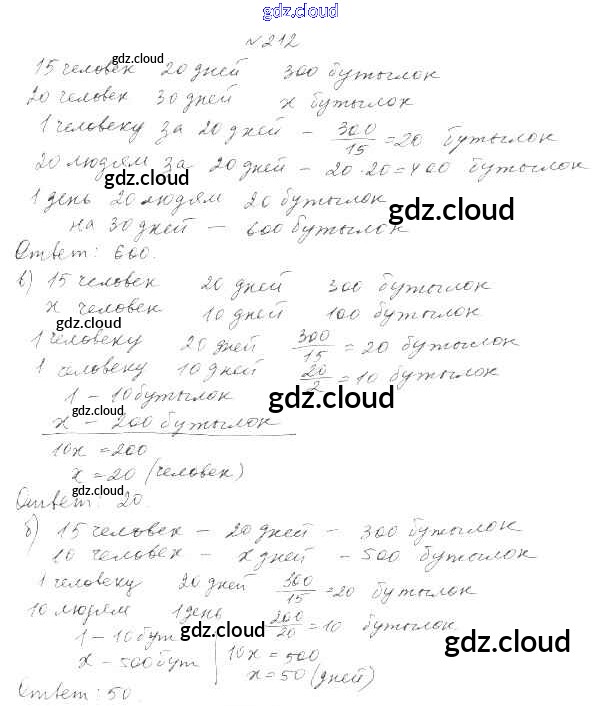 gdz.cloud
№212
gdz.cloud
15 человек 20 дней 300 бутылок
20 человек 30 дней x бутылок
gdz.cloud
1 человеку за 20 дней – 300/15 = 20 бутылок
20 людям за 20 дней – 20·20=400 бутылок
gdz.cloud
1 день 20 людям 20 бутылок
gdz.cloud
на 30 дней – 600 бутылок
Ответ: 600.
в) 15 человек 20 дней 300 бутылок
x человек 10 дней 100 бутылок
gdz.cloud
1 человеку 20 дней 300/15 = 20 бутылок
1 человеку 10 дней 20/2 = 10 бутылок
1 – 10 бутылок
gdz.cloud
gdz.cloud
x – 200 бутылок
10x = 200
x = 20 (человек)
gdz.cloud
Ответ: 20.
б) 15 человек – 20 дней – 300 бутылок
10 человек – x дней – 500 бутылок
1 человеку 20 дней 300/15 = 20 бутылок
10 людям 1 день 200/20 = 10 бутылок
gdz.cloud
gdz.cloud
1 – 10 бут
10x = 500
x – 500 бут
x = 50 (дней)
Ответ: 50.